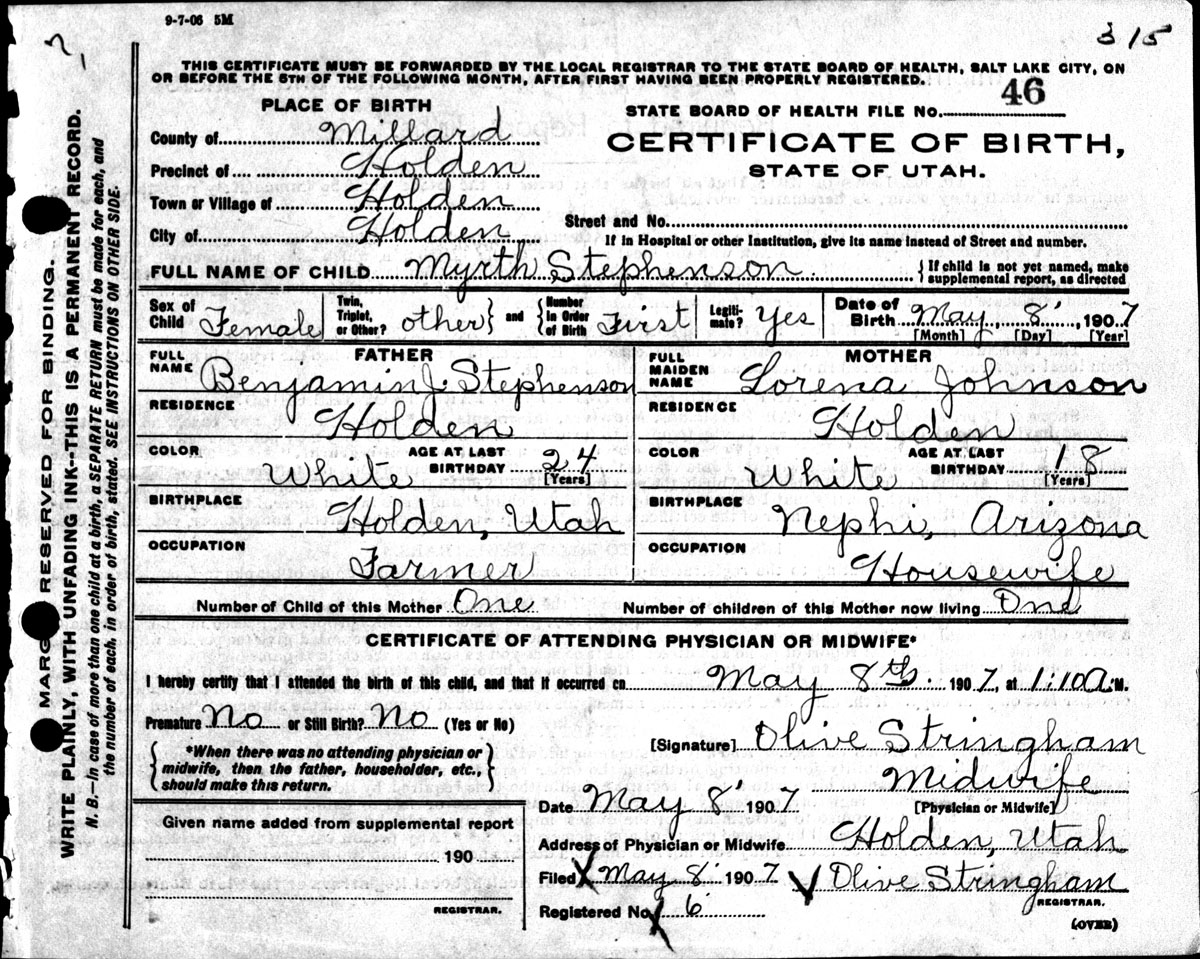 9-7-06 5M
3 15
THIS CERTIFICATE MUST BE FORWARDED BY THE LOCAL REGISTRAR TO THE STATE BOARD OF HEALTH, SALT LAKE CITY, ON
OR BEFORE THE 5TH OF THE FOLLOWING MONTH, AFTER FIRST HAVING BEEN PROPERLY REGISTERED.
PLACE OF BIRTH
County of Millard
Precinct of Holden
Town or Village of Holden
City of Holden
STATE BOARD OF HEALTH FILE No. 46
CERTIFICATE OF BIRTH,
STATE OF UTAH.
Street and No.
If in Hospital or other Institution, give its name instead of Street and number.
FULL NAME OF CHILD Myrth Stephenson { If child is not yet named, make
supplemental report, as directed
Sex of Child Female
Twin, Triplet, or Other? other } and { Number in Order of Birth First
Legitimate? Yes
Date of Birth May 8, 1907
[Month] [Day] [Year]
FATHER
FULL NAME Benjamin J. Stephenson
RESIDENCE Holden
COLOR White AGE AT LAST BIRTHDAY 24 [Years]
BIRTHPLACE Holden, Utah
OCCUPATION Farmer
MOTHER
FULL MAIDEN NAME Lorena Johnson
RESIDENCE Holden
COLOR White AGE AT LAST BIRTHDAY 18 [Years]
BIRTHPLACE Nephi, Arizona
OCCUPATION Housewife
Number of Child of this Mother One Number of children of this Mother now living One
CERTIFICATE OF ATTENDING PHYSICIAN OR MIDWIFE*
I hereby certify that I attended the birth of this child, and that it occurred on May 8th. 1907, at 1:10 A.M.
Premature No or Still Birth? No (Yes or No)
{ *When there was no attending physician or
midwife, then the father, householder, etc.,
should make this return. }
[Signature] Olive Stringham
Midwife
[Physician or Midwife]
Date May 8 1907
Address of Physician or Midwife Holden, Utah
Filed May 8 1907 Olive Stringham
REGISTRAR.
Registered No. 6
(OVER)
Given name added from supplemental report
190
REGISTRAR.
MARGIN RESERVED FOR BINDING.
WRITE PLAINLY, WITH UNFADING INK--THIS IS A PERMANENT RECORD.
N. B.—In case of more than one child at a birth, a SEPARATE RETURN must be made for each, and
the number of each, in order of birth, stated. SEE INSTRUCTIONS ON OTHER SIDE.